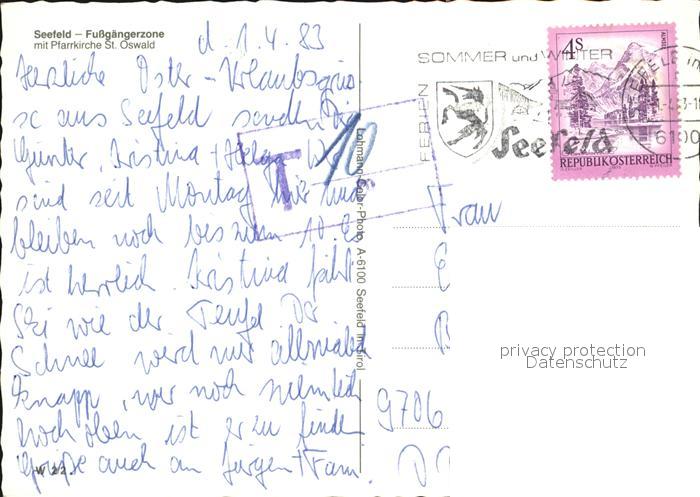 Seefeld – Fußgängerzone
mit Pfarrkirche St. Oswald
d. 1.4.83
Herzliche Oster-Urlaubsgrüs
se aus Seefeld senden Dir
Günter, Kristina + Helga. Wir
sind seit Montag hier und
bleiben noch bis zum 10. Es
ist herrlich. Kristina fährt
Ski wie der Teufel. Der
Schnee wird nur allmählich
knapp, nur noch ziemlich
hoch oben ist er zu finden
Grüße auch an Jürgen + Fam.
W 22
T 10
Lohmann-Color-Photo, A-6100 Seefeld in Tirol
FERIEN
SOMMER und WINTER
Seefeld
6100
4S
ALMSEE
REPUBLIK ÖSTERREICH
Frau
9706
privacy protection
Datenschutz